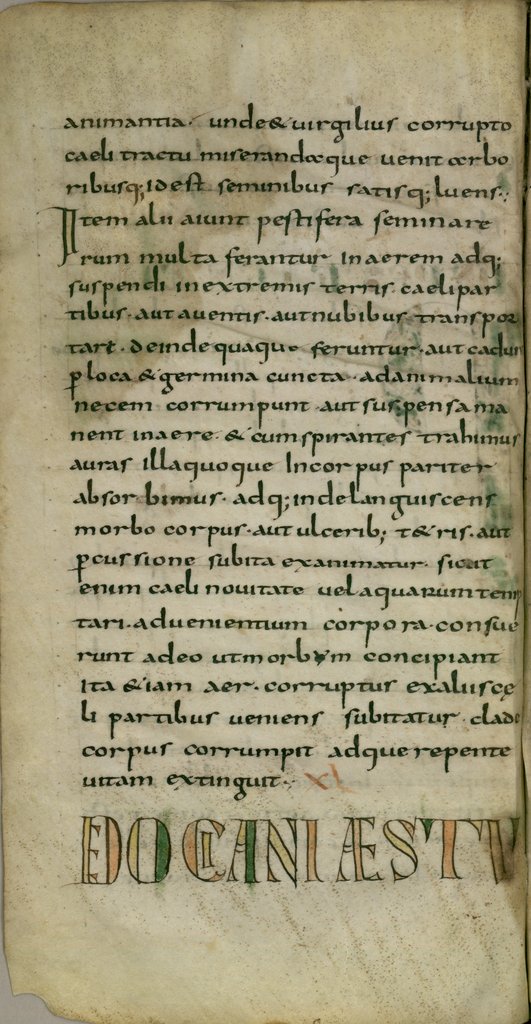 animantia. unde & uirgilius corrupto
caeli tractu miserandaque uenit arbo
ribusq; idest seminibus satisq; luens;
Item alii aiunt pestifera seminare
rum multa ferantur in aerem adq;
suspendi in extremis terris caeli par
tibus. aut auentis. aut nubibus transpor
tari. deinde quaqua feruntur. aut cadunt
p loca & germina cuncta. ad animalium
necem corrumpunt. aut suspensa ma
nent in aere. & cum spirantes trahimus
auras illa quoque In corpus pariter
absorbimus. adq; inde languiscens
morbo corpus. aut ulcerib; t&ris. aut
pcussione subita exanimatur. sicut
enim caeli nouitate uel aquarum tem
tari. aduenientium corpora. consue
runt adeo ut morbum concipiant
Ita &iam aer. corruptus ex aliis cę
li partibus ueniens subitatur. clade
corpus corrumpit adque repente
uitam extinguit. XI
DO CIANI ÆSTV